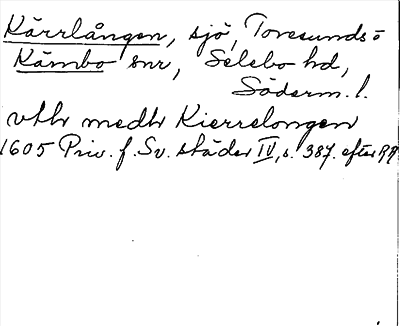 Kärrlången, sjö, Toresunds o
Kärnbo snr, Selebo hd,
Söderm. l.
vthr medh Kierrelongen
1605 Priv. f. Sv. städer IV, s. 387. efter RR